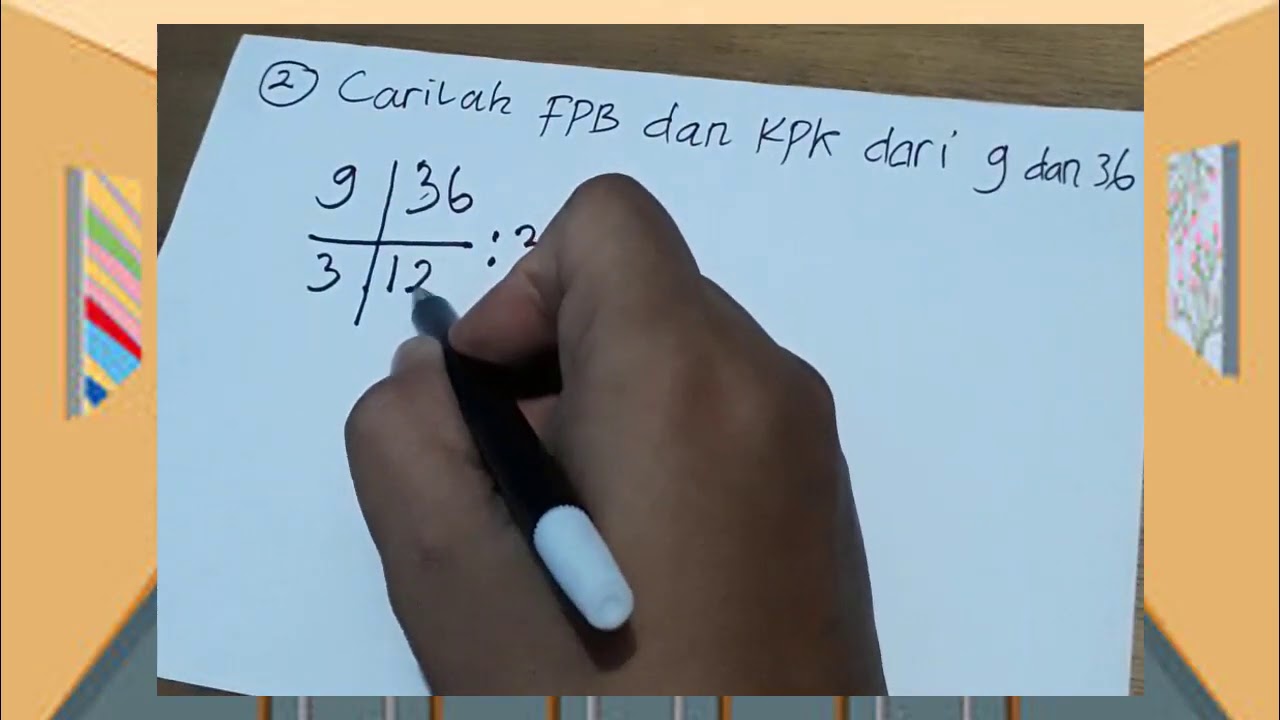 2 Carilah FPB dan KPK dari 9 dan 36
9 | 36
3 | 12 :